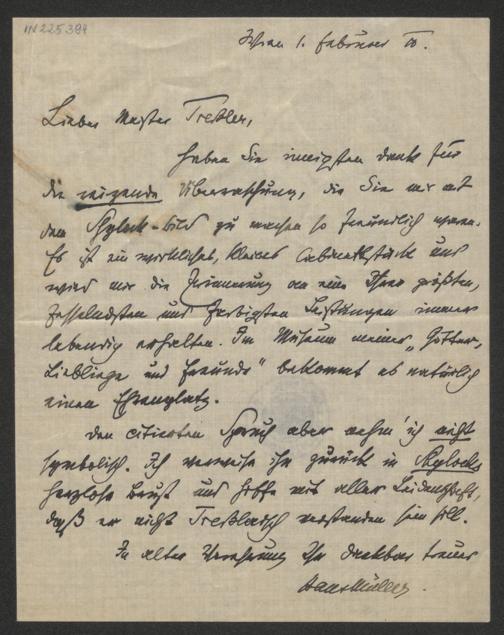 IN 225.394
Wien 1. Februar 10.
Lieber Meister Treßler,
haben Sie innigsten Dank für
die reizende Überraschung, die Sie mir mit
dem Shylock-Bild zu machen so freundlich waren.
Es ist ein wirkliches, kleines Cabinetstück und
wird mir die Erinnerung an eine Ihrer größten,
fesselndsten und farbigsten Leistungen immer
lebendig erhalten. Im Museum meiner „Götter,
Lieblinge und Freunde" bekommt es natürlich
einen Ehrenplatz.
Den citierten Spruch aber nehm' ich nicht
symbolisch. Ich verweise ihn zurück in Shylocks
herzlose Brust und hoffe mit aller Leidenschaft,
daß er nicht Treßlerisch verstanden sein soll.
In alter Verehrung Ihr dankbar treuer
Hans Müller.